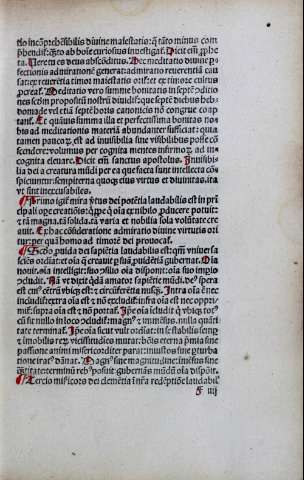 tio incōp̄rehēsibilis diuine maiestatis: q̄ tāto minus com
p̄hendif: q̄ꝫto ab hoīe curiosius inuestigaf. Dicit em̄ ꝓphe
ta. Uere tu es deus abscōditus. Hec meditatio diuine ꝑ
fectionis admirationē generat: admiratio reuerentiā cau
sat: ex reuerētia timor maiestatis orif: et ex timore cursus
Meditatio vero summe bonitatis in septē oditio
nes scḋm propositū nostrū diuidif: que septē diebus hebdo
made vel etiā septē horis canonicis nō congrue coap
tant̄. Et quāuis summa illa et perfectissima bonitas no
bis ad meditationis materiā abundanter sufficiat: quia
tamen paucoꝝ est ad inuisibilia sine visibilibus posse cō
scendere: volumus per cognita mentes infirmoꝝ, ad in
cognita eleuare. Dicit em̄ sanctus apostolus. Inuisibi
lia dei a creatura mūdi per ea que facta sunt intellecta cō
spiciuntur: sempiterna quoqꝫ eius virtus et diuinitas, ita
vt sint inexcusabiles.
Primo igit̄ mira ꝟtus dei potētia laudabilis est in pri
cipali operatiōis: q̄ꝛ ꝙ oīa ex nihilo ꝓducere potuit:
⁊ tā magna. tā solida. tā varia et nobilia sola volūtate crea
uit. Ex hac cōsideratione admiratio diuine virtutis ori
tur: per quā homo ad timorē dei prouocaf.
Scḋo ꝓuida dei sapiētia laudabilis est: qm̄ vniuersa
sciēs ordiat: et oīa q̄ creauit ꝑ suā prudētiā gubernat. Oīa
nouit. oīa intelligit: suo ꝓfilio oīa disponit: oīa suo imꝑio
ꝓcludit. Nā vt dixit qdā amator sapiētie mūdi. De⁹ spera
est cui⁹ cētrū vbiqꝫ est: ⁊ circūferētia nusqꝫ̄. Intra oīa ē nec
includif: extra oīa est ⁊ nō excludif: infra oīa est nec oppri
mif: supra oīa est ⁊ nō portaf. Ip̄e oīa ꝓcludit qꝛ vbiqꝫ tot⁹
cū sit nullo in loco ꝓcludif: magn⁹ ⁊ īmensus. nulla quāti
tate terminaf. Ip̄e oīa sicut vult ordiat: in se stabilis semꝑ
⁊ immobilis rex, vicissitudīes mutat: bōis eterna p̄mia sine
passione animi misericorditer parat: iniustos sine ꝑturba
tione irat⁹ dānat. Magn⁹ sine magnitudīe: īmēsus sine
q̄ntitate: terminū reb⁹ posuit: gubernās mūdū oīa dispōit.
Tercio misericors dei clemētia in nr̄a redēptiōe laudabil'
f iij